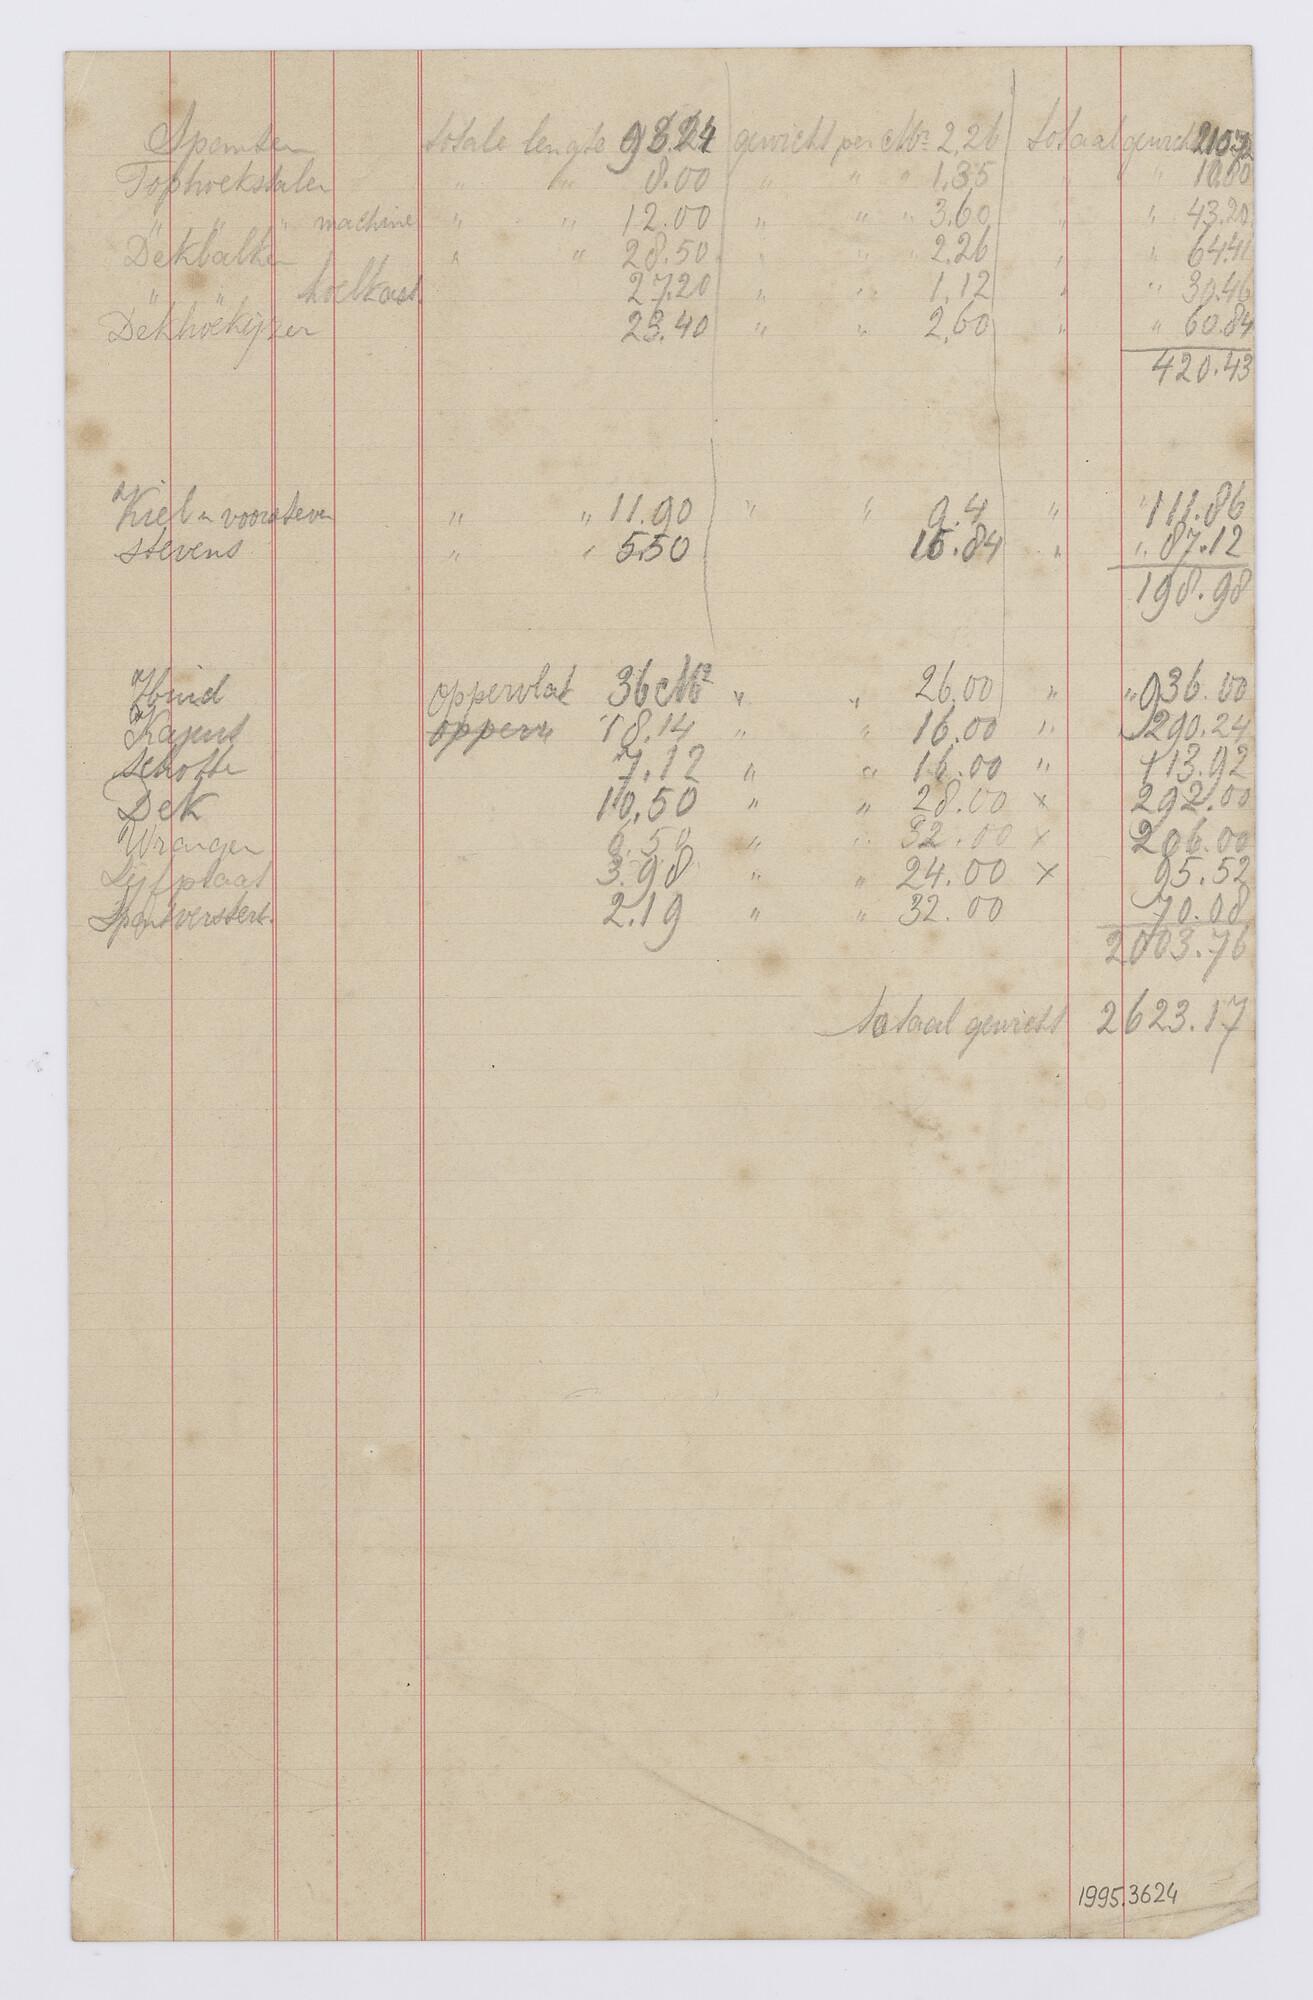 Spanten totale lengte 93.24 gewicht per M. 2,26 totaal gewicht 210.72
Tophoekstalen " " 8.00 " " " 1.35 " " 10.80
" " " machine " " 12.00 " " " 3.60 " " 43.20
Dekbalken " " 28.50 " " " 2.26 " " 64.41
" " 27.20 " " 1,12 " " 30.46
Dekhoekijzer 23.40 " " 2,60 " " 60.84
420.43
Kiel en voorsteven " " 11.90 " " 9.4 " " 111.86
Stevens " " 5.50 15.84 " " 87.12
198.98
Huid oppervlak 36 M² " " 26.00 " " 936.00
Kajuit opperv 18.14 " " 16.00 " 290.24
Schotten 7.12 " " 16.00 " 113.92
Dek 10,50 " " 28.00 x 292.00
Wrangen 6.50 " " 32.00 x 206.00
Lijfplaat 3.98 " " 24.00 x 95.52
Spantversterk. 2.19 " " 32.00 70.08
2003.76
totaal gewicht 2623.17
1995.3624